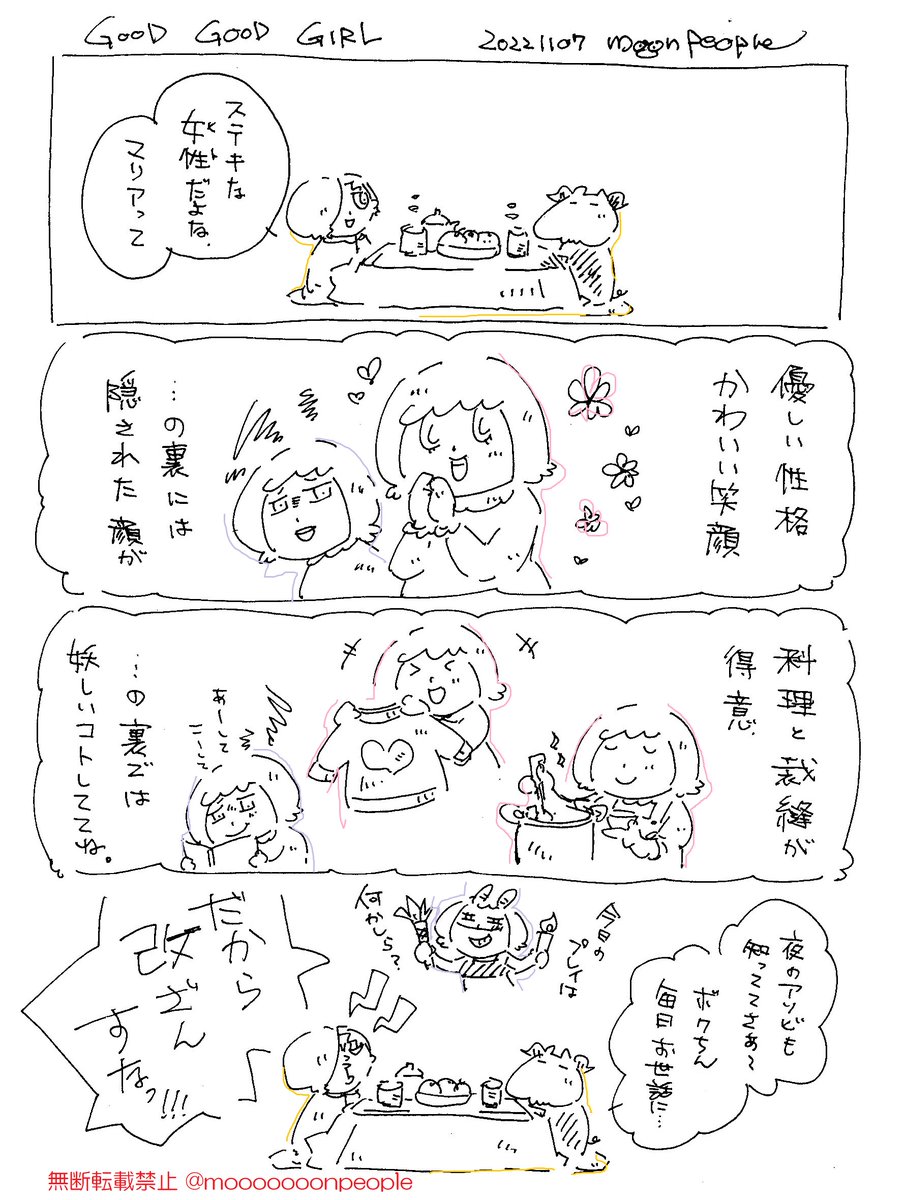 GOOD GOOD GIRL
20221107 moonpeople
ステキな
女性だよな、
マリアって
優しい性格
かわいい笑顔
…の裏には
隠された顔が
料理と裁縫が
得意
…の裏では
妖しいコトしててね。
あーして
こーして
夜のアソビも
知っててさあ〜
ボクちん
毎日お世話に…
今日の
プレイは
何かしら?
だから
改ざん
すなっ!!!
無断転載禁止 @mooooooonpeople